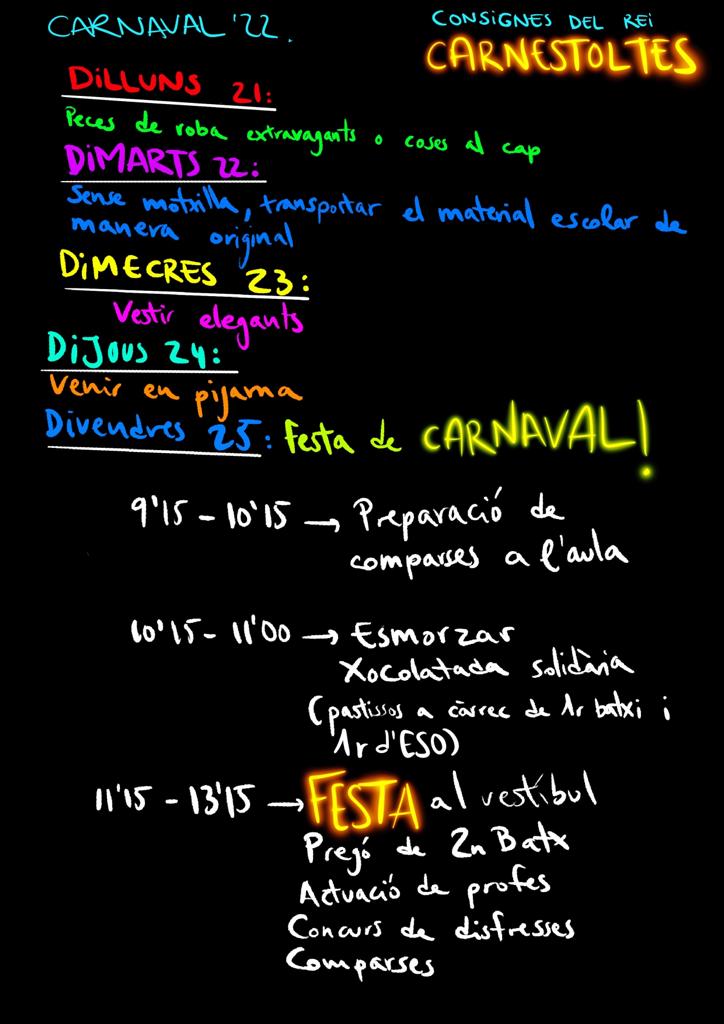 CARNAVAL '22.
CONSIGNES DEL REI
CARNESTOLTES
DILLUNS 21:
Peces de roba extravagants o coses al cap
DIMARTS 22:
Sense motxilla, transportar el material escolar de
manera original
DIMECRES 23:
Vestir elegants
DIJOUS 24:
Venir en pijama
Divendres 25: Festa de CARNAVAL!
9'15 - 10'15 → Preparació de
comparses a l'aula
10'15 - 11'00 → Esmorzar
Xocolatada solidària
(pastissos a càrrec de 1r batxi i
1r d'ESO)
11'15 - 13'15 → FESTA al vestíbul
Pregó de 2n Batx
Actuació de profes
Concurs de disfresses
Comparses